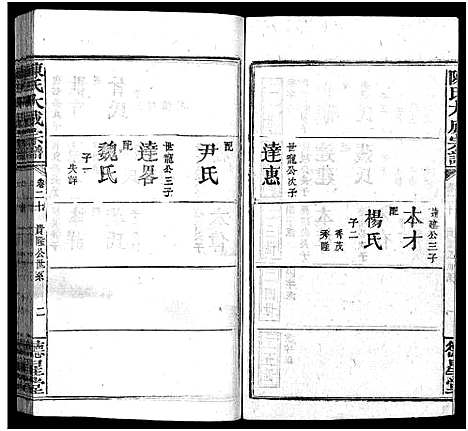 陳氏大成宗譜
達建公三子
本才
配
楊氏
子二
秀茂
秀隆
世寵公次子
達惠
配
尹氏
世寵公三子
達畧
配
魏氏
子一
失詳
陳氏大成宗譜
卷二十
貴隆公世系
二
德星堂
德星堂